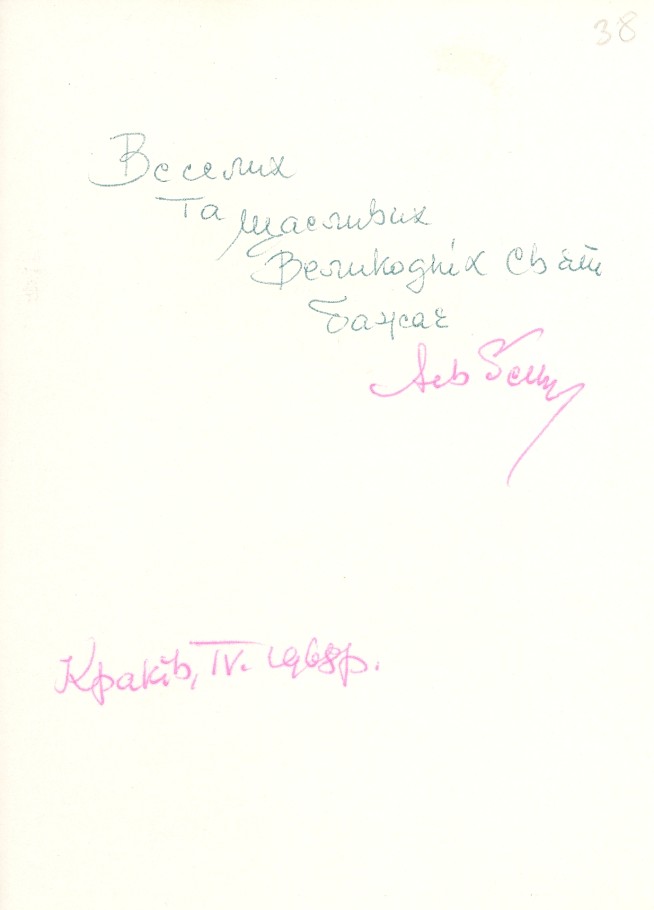 38
Веселих
та щасливих
Великодніх Свят
бажає
Лев Гец
Краків, IV. 1968р.